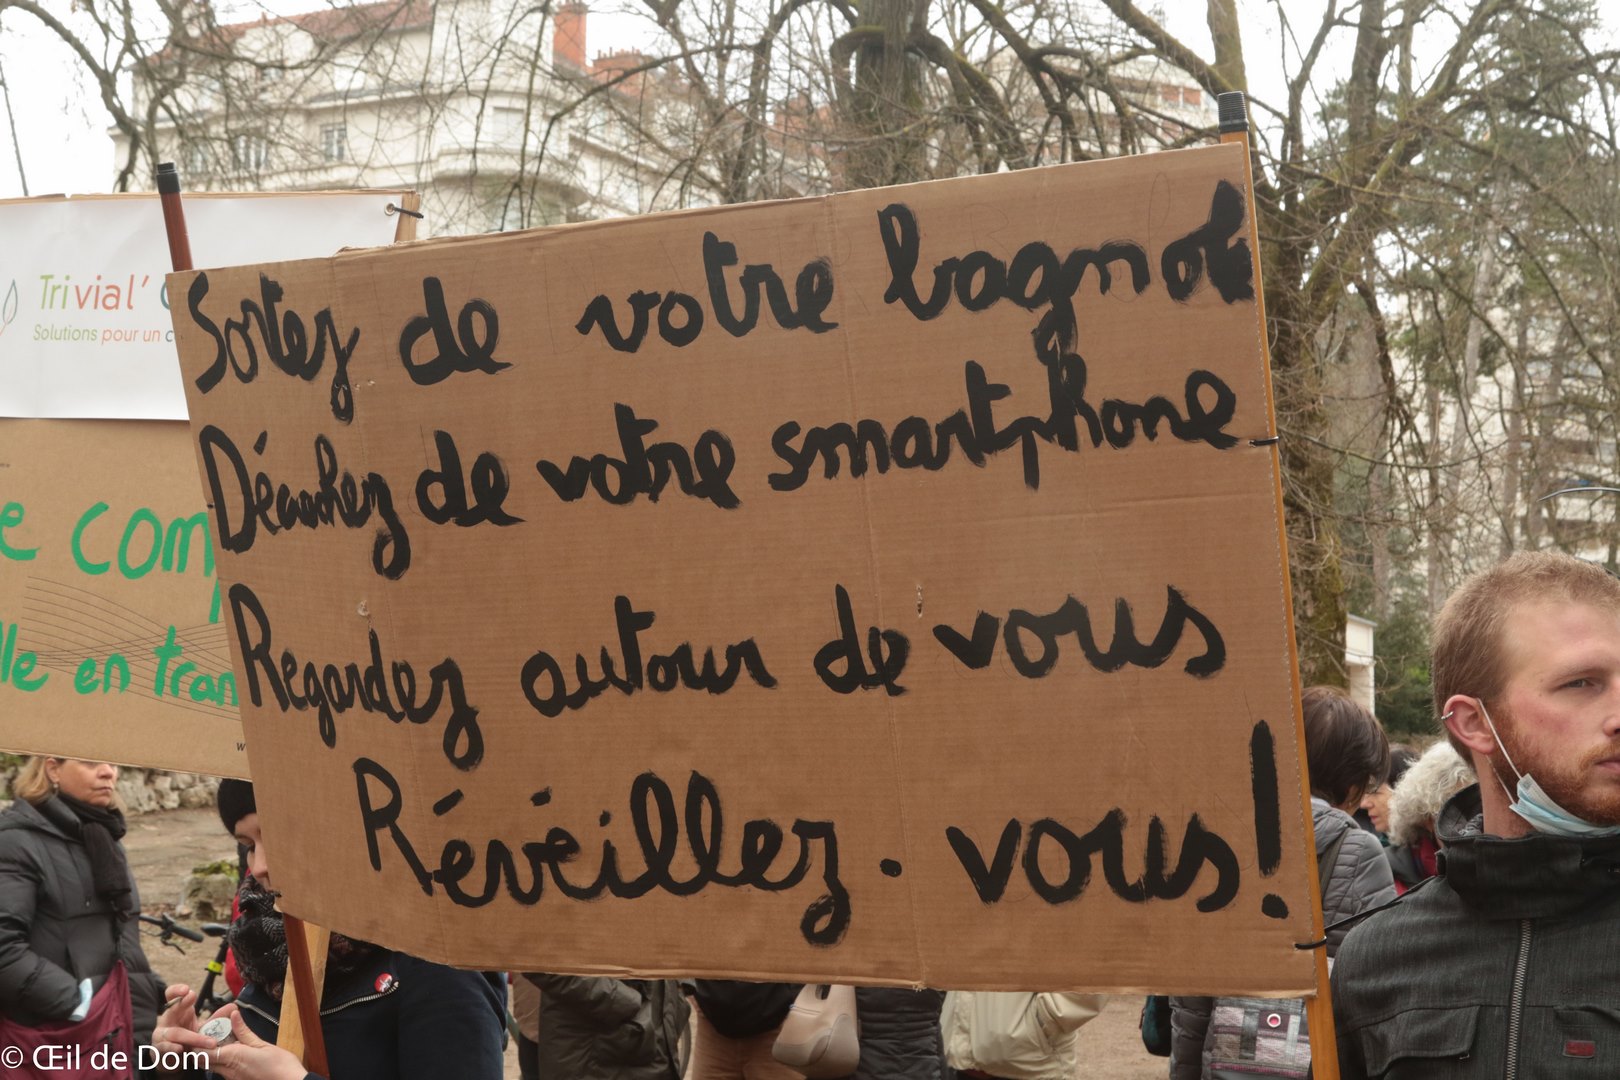 Trivial'
Solutions pour un c
e com
lle en tran
Sortez de votre bagnole
Décrochez de votre smartphone
Regardez autour de vous
Réveillez-vous!
© Œil de Dom